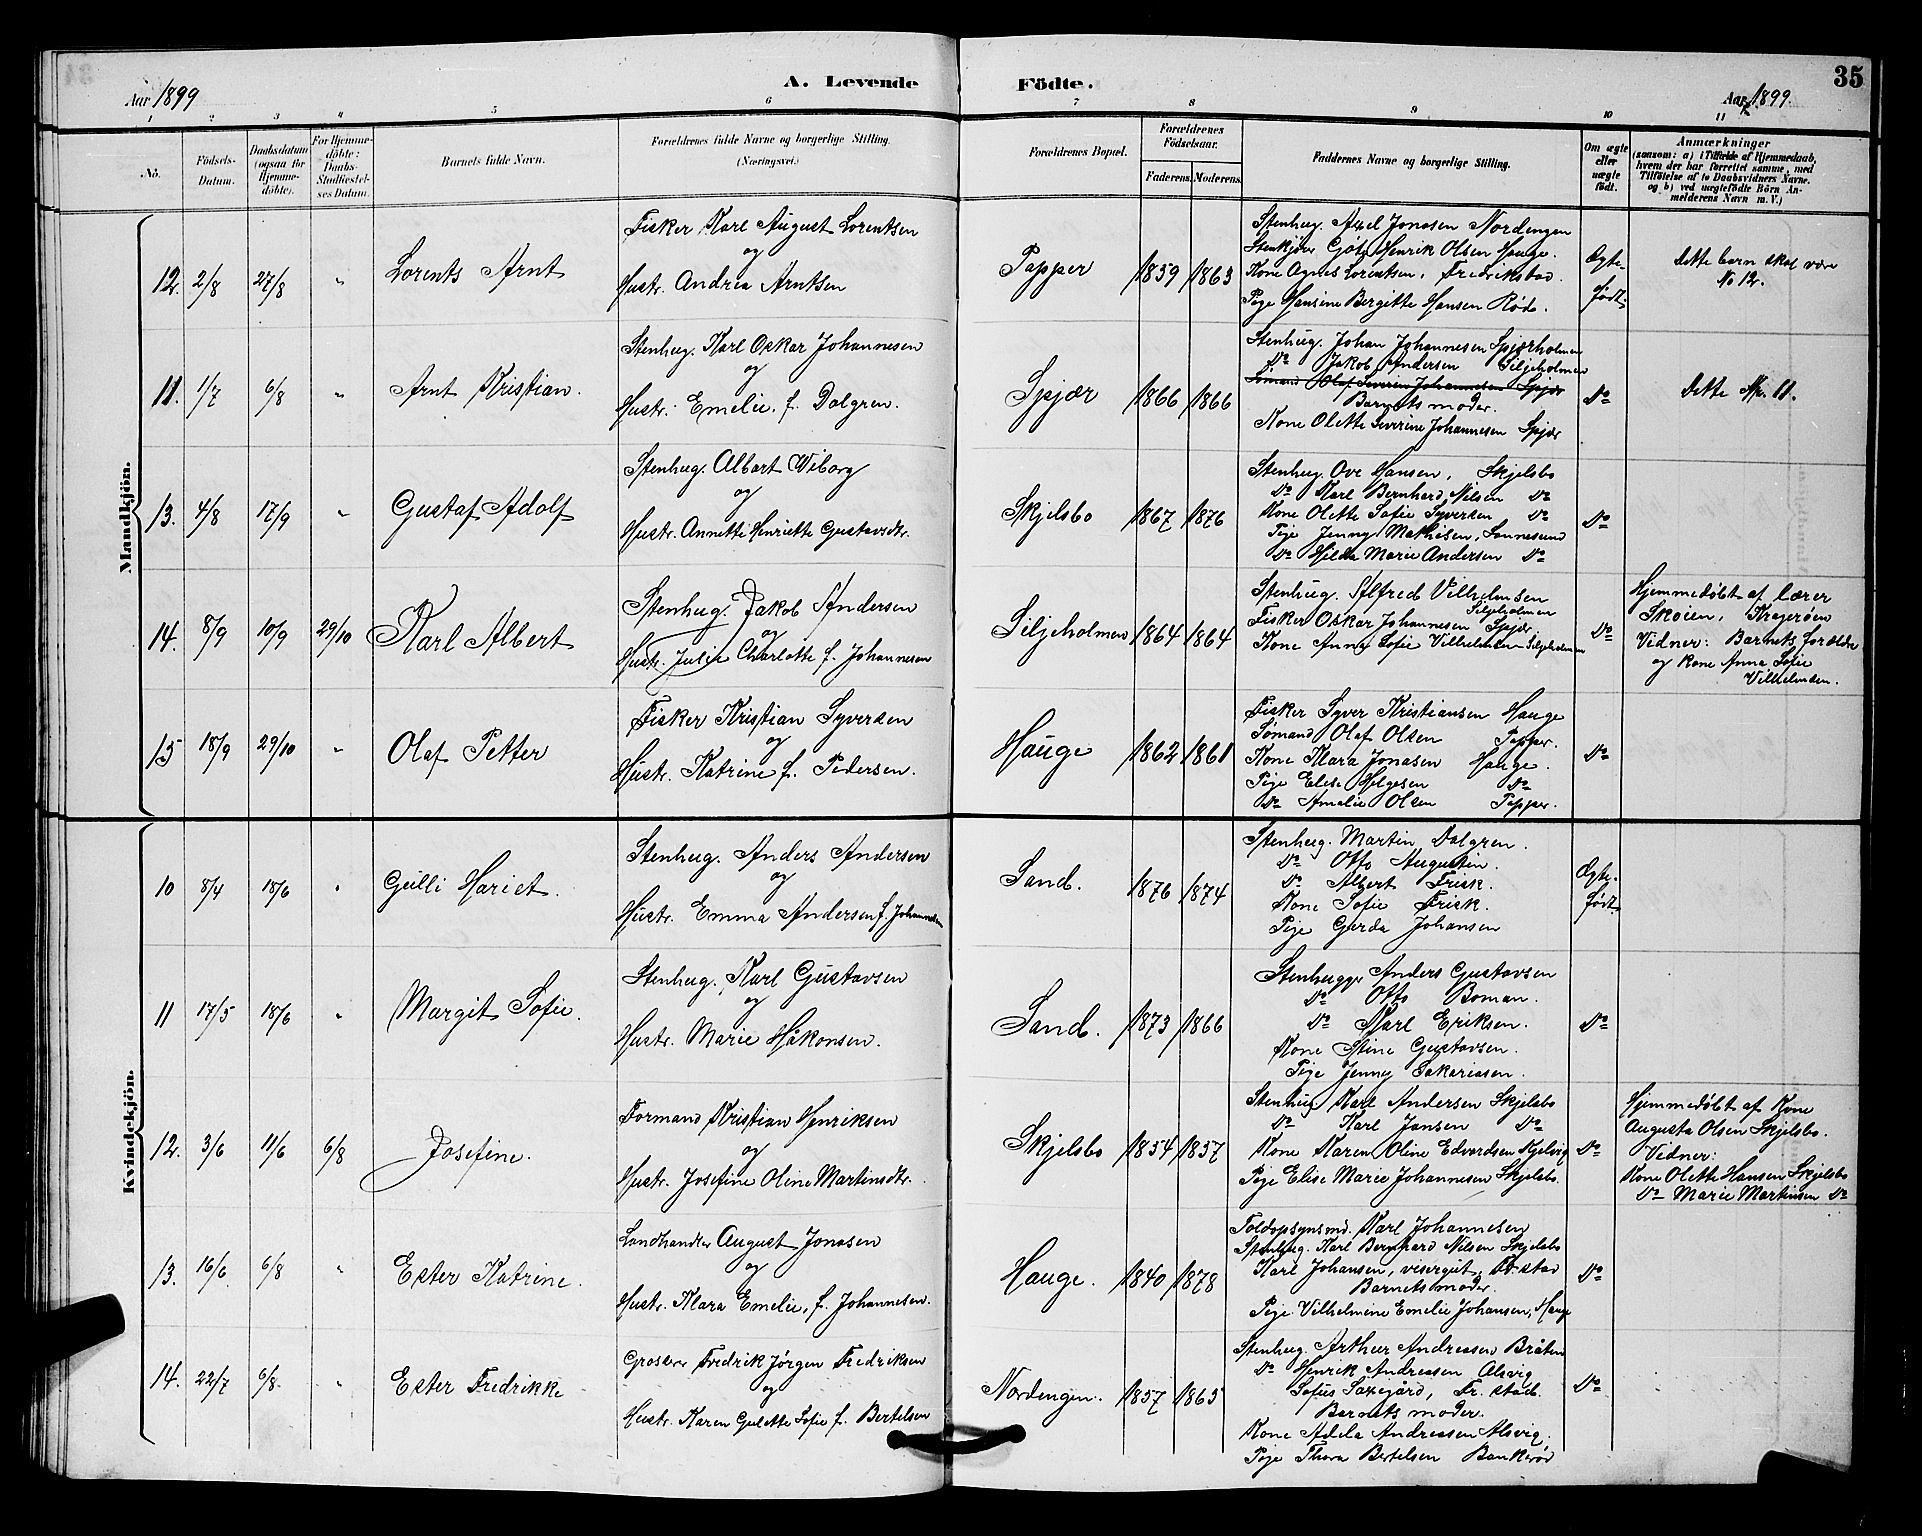 Aar 1899
A. Levende
Födte.
Aar 1899.
35
1 2 3 4 5 6 7 8 9 10 11
No.
Födsels-
Datum.
Daabsdatum
(ogsaa for
Hjemme-
döbte).
For Hjemme-
döbte:
Daabs-
Stadfæstel-
ses Datum.
Barnets fulde Navn.
Forældrenes fulde Navne og borgerlige Stilling.
(Næringsvei.)
Forældrenes Bopæl.
Forældrenes
Födselsaar.
Faderens. Moderens.
Faddernes Navne og borgerlige Stilling.
Om ægte
eller
uægte
födt.
Anmærkninger
(saasom: a) i Tilfælde af Hjemmedaab,
hvem der har forrettet samme, med
Tilföielse af to Daabsvidners Navne.
og b) ved uægtefödte Börn An-
melderens Navn m. V.)
Mandkjön.
12. 2/8 27/8 "
Lorents Arnt
Fisker Karl August Lorentsen
og
Hustr. Andrea Arntsen
Papper
1839 1863
Stenhug. Axel Jonasen Nordengen
Stenkjører Henrik Olsen Hauge.
Kone Agnes Lorentsen, Fredrikstad.
Pige Hansine Bergitte Hansen Röd.
Ægte-
född.
Dette barn skal være
No 12.
11. 1/7 6/8 "
Arnt Kristian.
Stenhug. Karl Oskar Johannesen
og
Hustr. Emelie f. Dalgren.
Spjær
1866 1866
Stenhug. Johan Johannesen Spjærholmen
Do Jakob Andersen Siljeholmen
Sømand Olaf Severin Johannesen Spjær
Barnets moder.
Kone Olette Severine Johannesen Spjær
Do
Dette Nr. 11.
13. 4/8 17/9 "
Gustaf Adolf
Stenhug. Albert Wiborg
og
Hustr. Annette Henriette Gustavsdtr.
Skjelsbo
1867 1876
Stenhug. Ove Hansen, Skjelsbo
Do Karl Bernhard Nilsen Do
Kone Olette Sofie Syversen Do
Pige Jenny Mathisen, Lunnesund
Do Hilda Marie Andersen Do
Do
14. 8/9 10/9 29/10
Karl Albert
Stenhug. Jakob Andersen
og
Hustr. Julie Charlotte f. Johannesen
Siljeholmen
1864 1864
Stenhug. Alfred Vilhelmsen
Siljeholmen
Fisker Oskar Johannesen Spjær
Kone Anna Sofie Vilhelmsen Siljeholmen
Do
Hjemmedøbt af lærer
Skøien, Kragerøen
Vidner: Barnets forældre
og kone Anna Sofie
Vilhelmsen.
15 18/9 29/10 "
Olaf Petter
Fisker Kristian Syversen
og
Hustr. Katrine f. Pedersen.
Hauge
1862 1861
Fisker Syver Kristiansen Hauge
Sømand Olaf Olsen Papper.
Kone Klara Jonasen Hauge.
Pige Elise Helgesen Do
Do Amalie Olsen Papper.
Do
Kvindekjön.
10 8/4 18/6 "
Gulli Hariet.
Stenhug. Anders Andersen
og
Hustr. Emma Andersen f. Johannesen
Sand.
1876 1874
Stenhug. Martin Dalgren.
Do Otto Augustin.
Do Albert Frisk.
Kone Sofie Frisk.
Pige Gerda Johansen
Ægte-
född.
11 17/5 18/6 "
Margit Sofie.
Stenhug. Karl Gustavsen
og
Hustr. Marie Håkonsen.
Sand.
1873 1866
Stenhugger Anders Gustavsen
Do Otto Boman.
Do Karl Eriksen.
Kone Stine Gustavsen.
Pige Jenny Sakariasen.
Do
12. 3/6 11/6 6/8
Josefine.
Formand Kristian Henriksen
og
Hustr. Josefine Oline Martinsdtr.
Skjelsbo
1854 1857
Stenhug. Karl Andersen Skjelsbo
Do Karl Jansen Do
Kone Karen Oline Edvardsen Kjelvig
Pige Elise Marie Johannesen Skjelsbo.
Do
Hjemmedøbt af Kone
Augusta Olsen Skjelsbo.
Vidner:
Kone Olette Hansen Skjelsbo
Do Marie Martinsen Do
13. 16/6 6/8 "
Ester Katrine.
Landhandler August Jonasen
og
Hustr. Klara Emelie, f. Johannesen.
Hauge.
1840 1878
Toldopsynsmd. Karl Johannesen
Stenhug. Karl Bernhard Nilsen Skjelsbo
Karl Johansen, visergut, Fr.stad
Barnets moder.
Pige Vilhelmine Emelie Johansen, Hauge
Do
14. 22/7 6/8. "
Ester Fredrikke
Grosserer Fredrik Jörgen Fredriksen
og
Hustr. Karen Gulette Sofie f. Bertelsen
Nordengen.
1857 1865
Stenhug. Arthur Andreasen Bråten
Do Henrik Andreasen Alsvig
Sofus Saxegård, Fr. stad.
Barnets moder.
Kone Adela Andreasen Alsvig.
Pige Thora Bertelsen Bankerød
Do